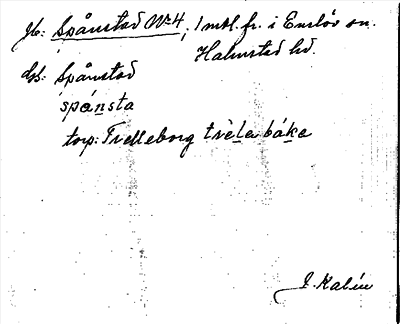 Jb: Spånstad No 4, 1 mtl. fr. i Enslöv sn.
Halmstad hd.
Us: Spånstad
spånsta
torp: Trelleborg trèle båke
J. Kalén